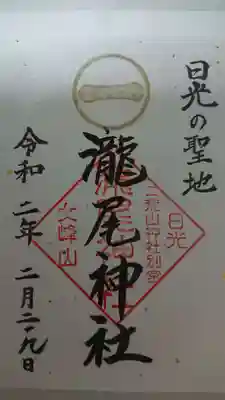 日光の聖地
瀧尾神社
令和二年二月二十九日
日光
二荒山神社別宮
女峰山